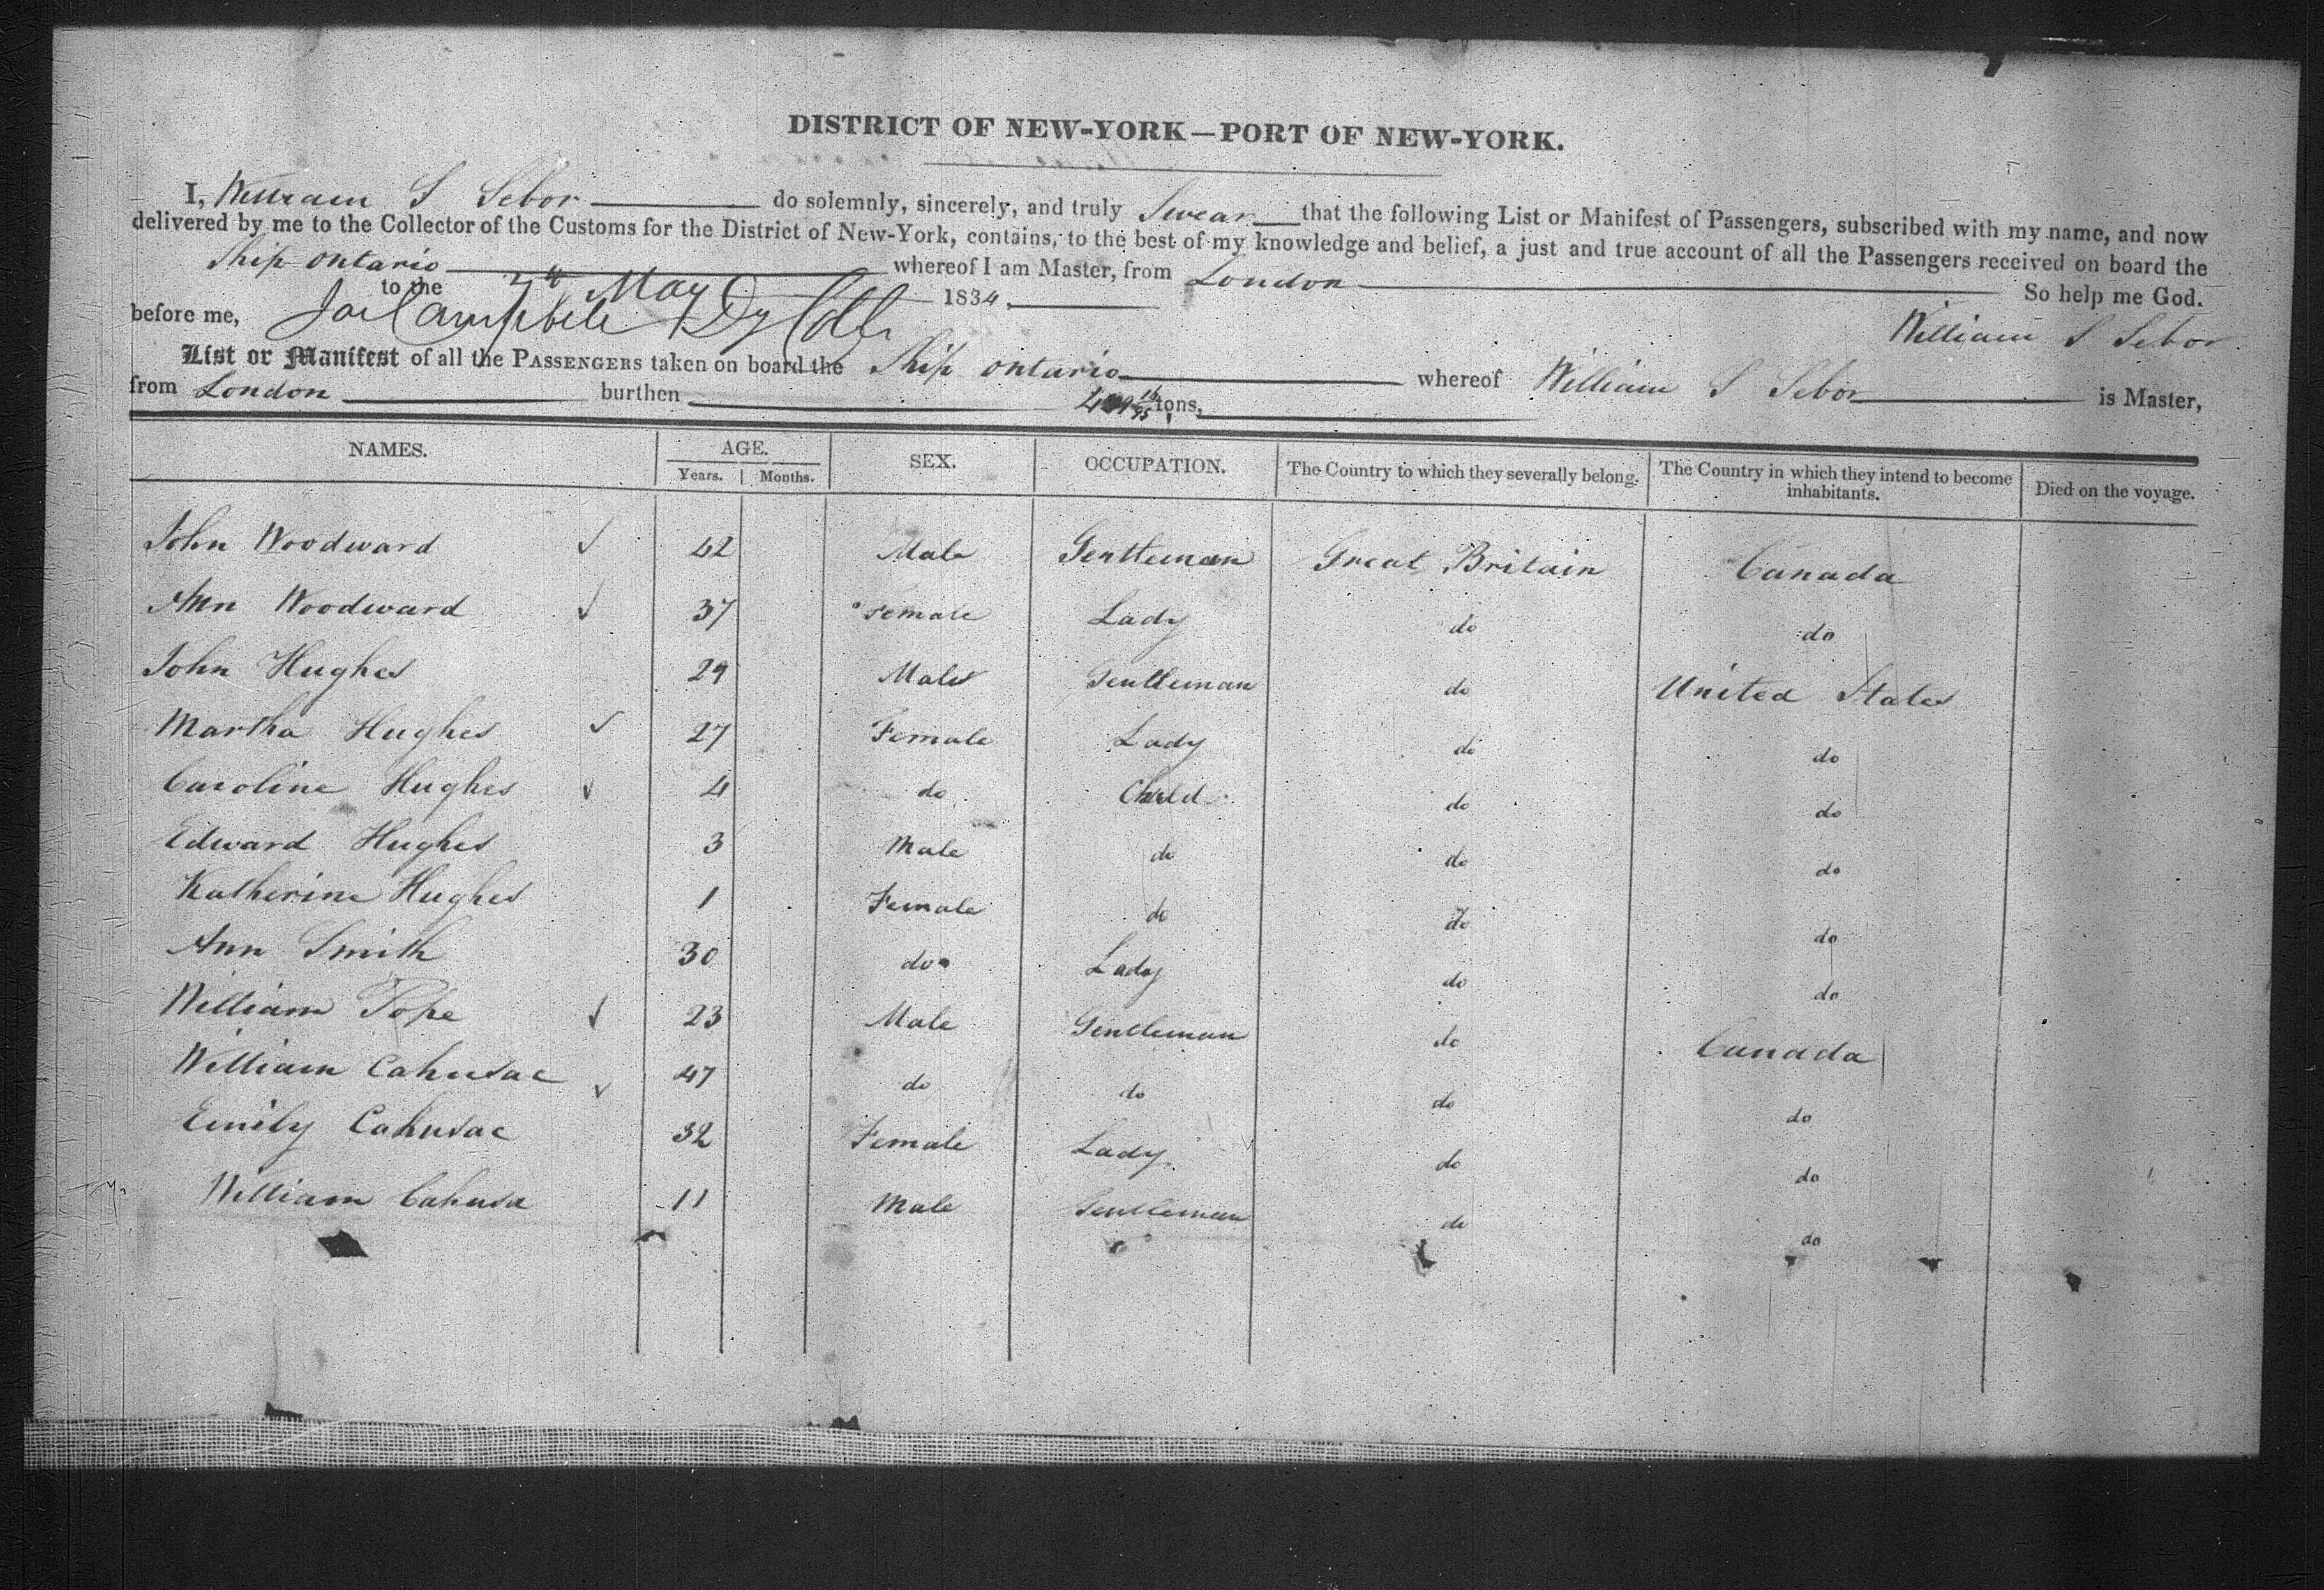 DISTRICT OF NEW-YORK—PORT OF NEW-YORK.
I, William S Sebor do solemnly, sincerely, and truly Swear that the following List or Manifest of Passengers, subscribed with my name, and now
delivered by me to the Collector of the Customs for the District of New-York, contains, to the best of my knowledge and belief, a just and true account of all the Passengers received on board the
Ship Ontario whereof I am Master, from London So help me God.
to the May 1834
before me, Campbell Dy Coll William S Sebor
List or Manifest of all the PASSENGERS taken on board the Ship Ontario whereof William S Sebor is Master,
from London burthen tons,
NAMES. AGE. SEX. OCCUPATION. The Country to which they severally belong. The Country in which they intend to become inhabitants. Died on the voyage.
Years. Months.
John Woodward 42 Male Gentleman Great Britain Canada
Ann Woodward 37 Female Lady do do
John Hughes 29 Male Gentleman do United States
Martha Hughes 27 Female Lady do do
Caroline Hughes 4 do Child do do
Edward Hughes 3 Male do do do
Katherine Hughes 1 Female do do do
Ann Smith 30 do Lady do do
William Pope 23 Male Gentleman do Canada
William Cahusac 47 do do do do
Emily Cahusac 32 Female Lady do do
William Cahusa 11 Male Gentleman do do